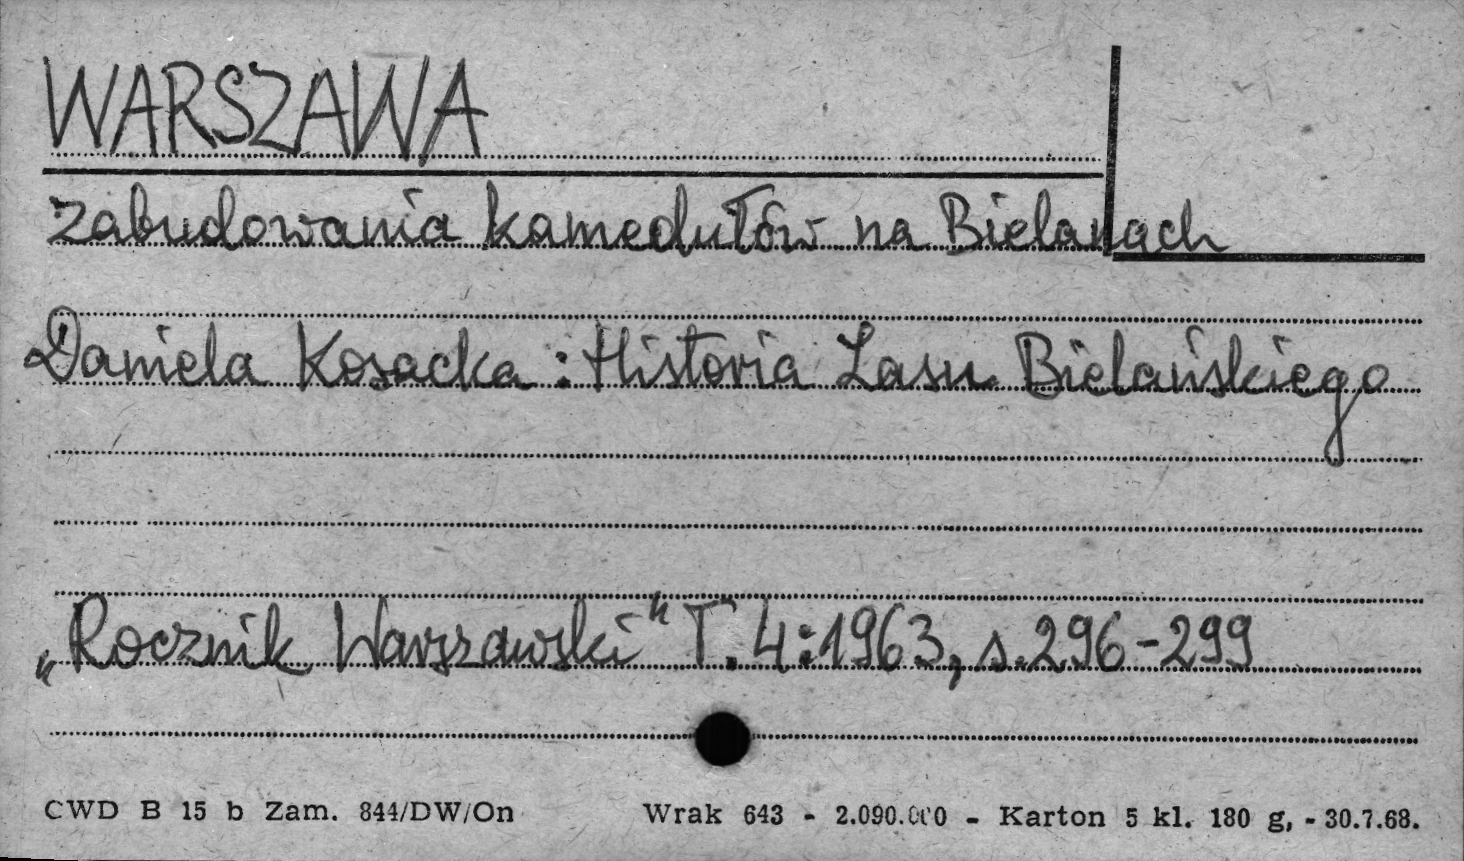 WARSZAWA
zabudowania kamedułów na Bielanach
Daniela Kosacka : Historia Lasu Bielańskiego
„Rocznik Warszawski" T. 4:1963, s. 296-299
CWD B 15 b Zam. 844/DW/On Wrak 643 - 2.090.000 - Karton 5 kl. 180 g, - 30.7.68.